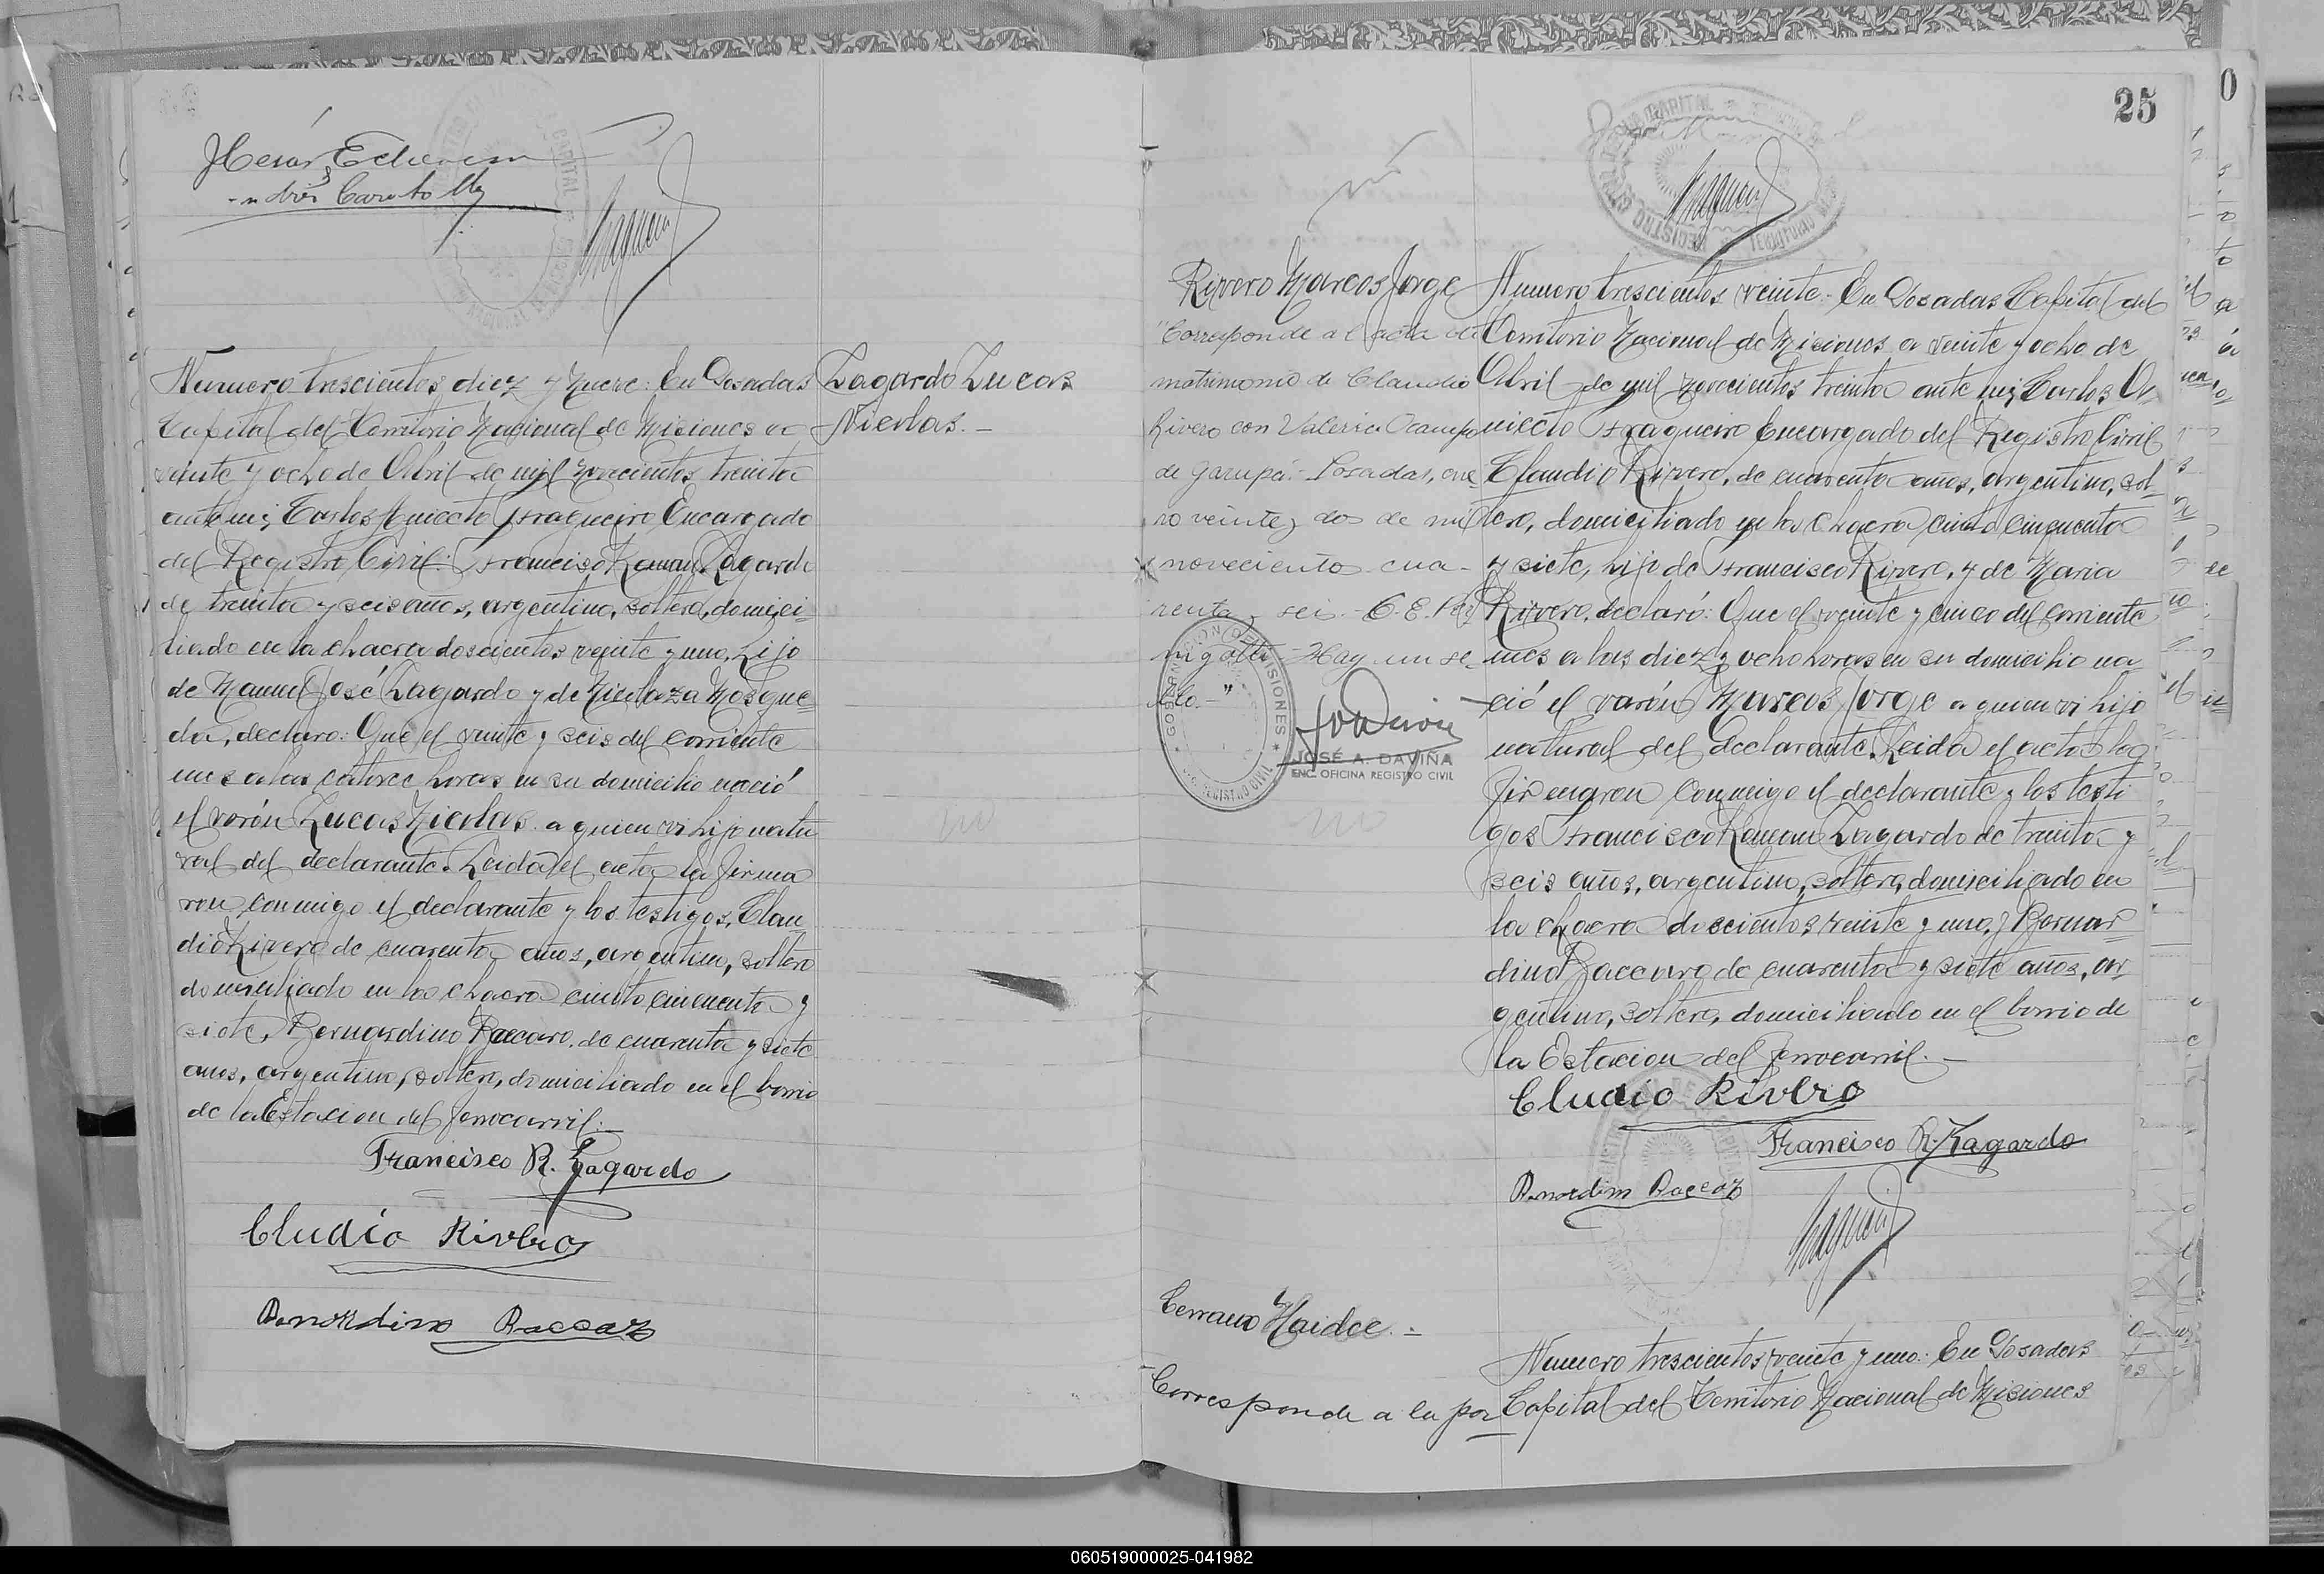 Numero trescientos diez y nueve: En Posadas
Capital del Territorio Nacional de Misiones a
veinte y ocho de Abril de mil novecientos treinta
ante mi; Carlos Aniceto Fragueiro Encargado
del Registro Civil: Francisco Ramon Lagardo
de treinta y seis años, argentino, soltero, domici-
liado en la chacra doscientos veinte y uno, hijo
de Manuel José Lagardo y de Nicolaza Mosque-
da, declaro: Que el veinte y seis del corriente
mes a las catorce horas en su domicilio nació
el varón Lucas Nicolas a quien vi hijo natu
ral del declarante. Leida el acta la firma
ron conmigo el declarante y los testigos, Clau
dio Rivero de cuarenta años, argentino, soltero
domiciliado en la chacra ciento cincuenta y
siete, Bernardino Baccaro de cuarenta y siete
años, argentino, soltero, domiciliado en el barrio
de la Estacion del ferrocarril.-
Francisco R. Lagardo
Cludio Rivero
Lagardo Lucas
Nicolas.-
25
0
Rivero Marcos Jorge
"Corresponde al acta de
matrimonio de Claudio
Rivero con Valeria Ocampo
de Garupá.- Posadas, ene
ro veinte y dos de mil
novecientos cua-
renta y seis.-
Hay un se
llo.-"
GOBERNACION DE MISIONES
REGISTRO CIVIL
JOSÉ A. DAVIÑA
ENC. OFICINA REGISTRO CIVIL
Numero trescientos veinte: En Posadas Capital del
Territorio Nacional de Misiones a veinte y ocho de
Abril de mil novecientos treinta ante mi; Carlos A-
niceto Fragueiro Encargado del Registro Civil
Claudio Rivero, de cuarenta años, argentino, sol-
tero, domiciliado en la chacra ciento cincuenta
y siete, hijo de Francisco Rivero, y de Maria
Rivero, declaró: Que el veinte y cinco del corriente
mes a las diez y ocho horas en su domicilio na
ció el varón Marcos Jorge a quien vi hijo
natural del declarante. Leida el acta la
firmaron conmigo el declarante y los testi
gos Francisco Ramon Lagardo de treinta y
seis años, argentino, soltero, domiciliado en
la chacra doscientos veinte y uno, y Bernar-
dino Baccaro de cuarenta y siete años, ar
gentino, soltero, domiciliado en el barrio de
la Estacion del ferrocarril.-
Cludio Rivero
Francisco R. Lagardo
Haidee.-
Corresponde a la por
Numero trescientos veinte y uno: En Posadas
Capital del Territorio Nacional de Misiones
060519000025-041982